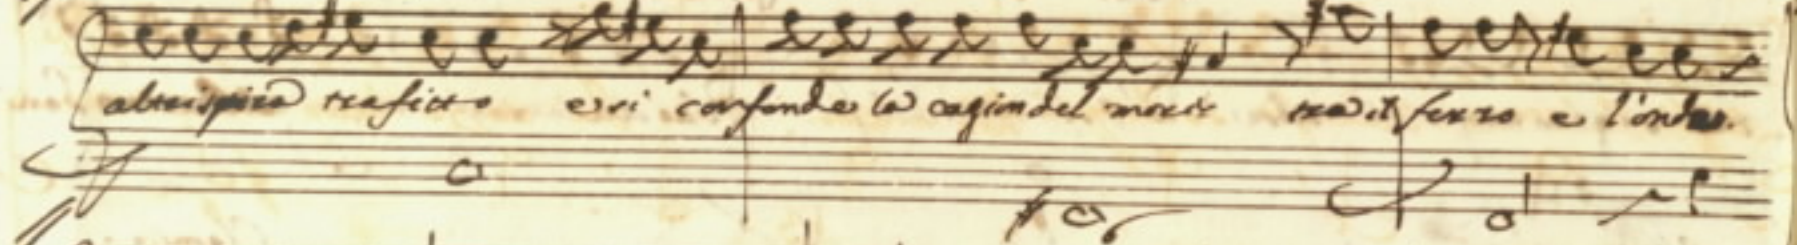 altri spira trafitto e si confonde la cagion del morir tra il ferro e l'onde.